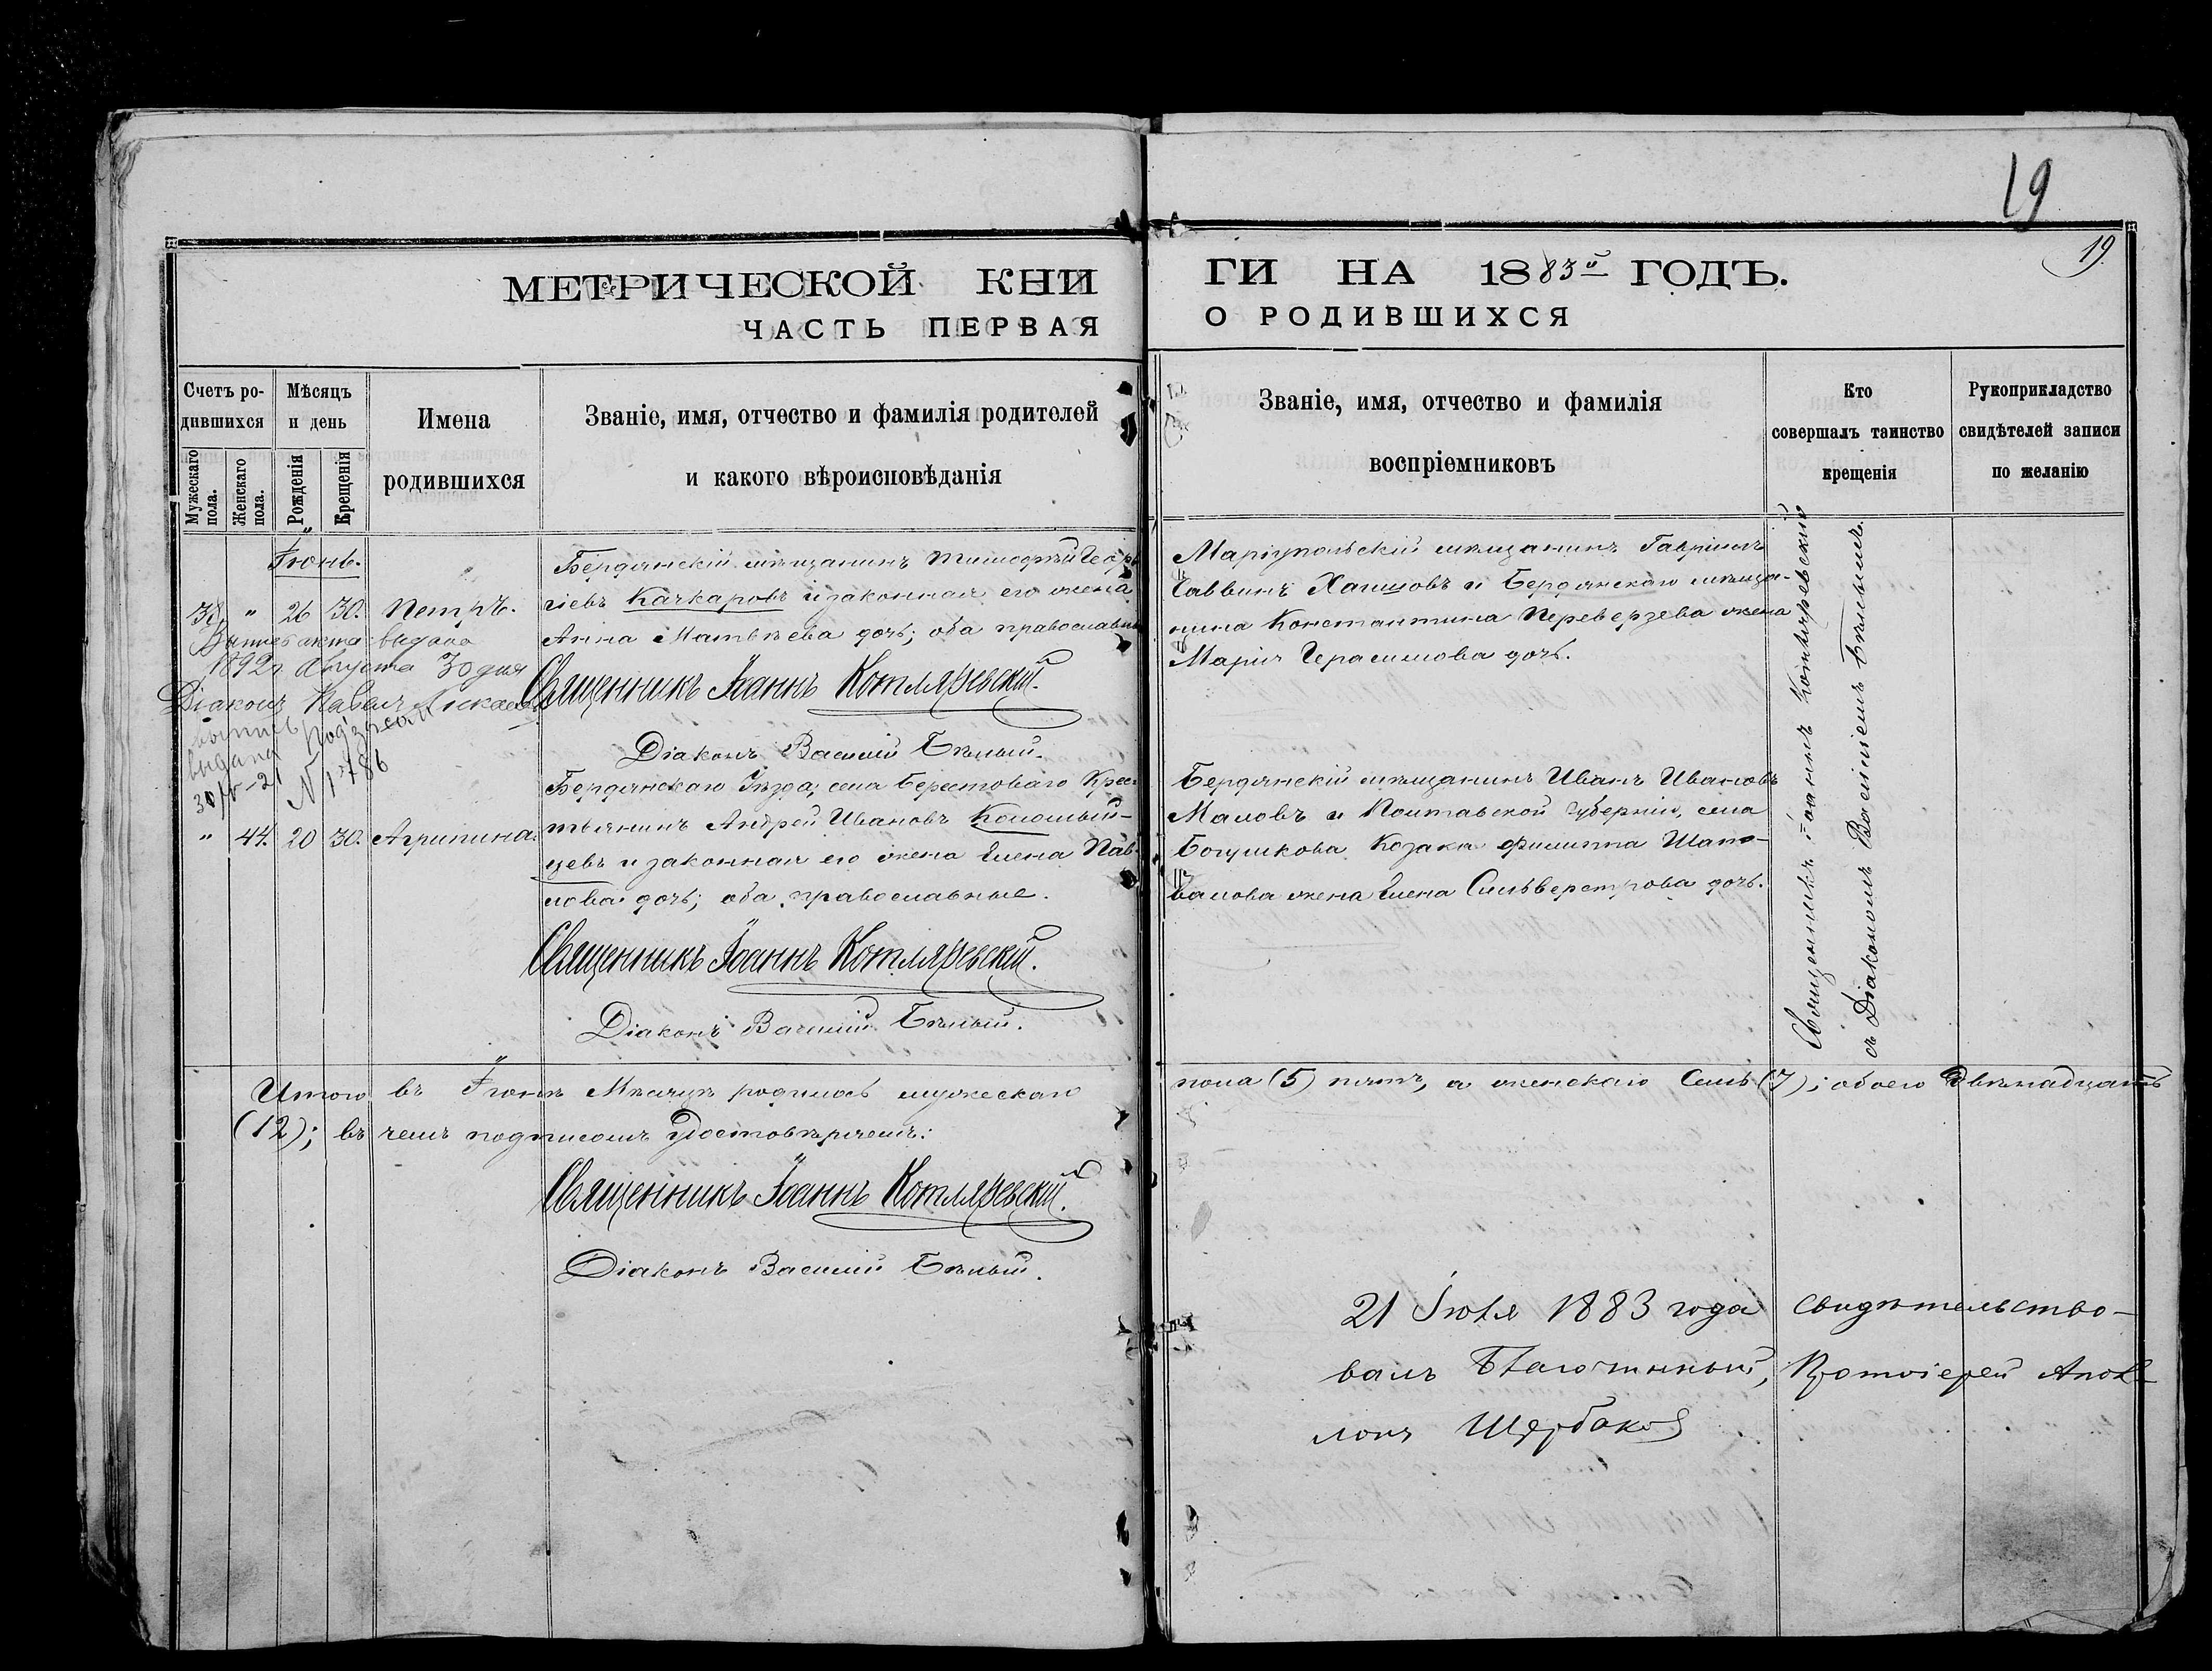 19
19.
МЕТРИЧЕСКОЙ КНИ
ГИ НА 1883й ГОДЪ.
ЧАСТЬ ПЕРВАЯ
О РОДИВШИХСЯ
Счетъ ро-
дившихся
Мужескаго пола.
Женскаго пола.
Мѣсяцъ
и день
Рожденія
Крещенія
Имена
родившихся
Званіе, имя, отчество и фамилія родителей
и какого вѣроисповѣданія
Званіе, имя, отчество и фамилія
воспріемниковъ
Кто
совершалъ таинство
крещенія
Рукоприкладство
свидѣтелей записи
по желанію
Іюнь.
38. " 26 30. Петръ.
Бердянскій мѣщанинъ Тимофей Геор
гіевъ Качкаровъ и законная его жена
Анна Матвѣева дочь; оба православн
Священникъ Іоаннъ Котляревскій.
Діаконъ Василій Бѣлый.
Маріупольскій мѣщанинъ Гавріилъ
Саввинъ Хашиовъ и Бердянскаго мѣща-
нина Константина Переверзева жена
Марія Герасимова дочь.
Выпись акта выдана
1892г. Августа 30 дня
Діаконъ Павелъ
выпись
выдана
30/V-21
№ 1786
" 44. 20 30. Агрипина.
Бердянскаго Уѣзда, села Берестоваго Крес-
тьянинъ Андрей Ивановъ Коломый-
цевъ и законная его жена Елена Пав-
лова дочь; оба православные.
Священникъ Іоаннъ Котляревскій.
Діаконъ Василій Бѣлый.
Бердянскій мѣщанинъ Иванъ Ивановъ
Маловъ и Полтавской Губерніи, села
Богушкова Козака Филиппа Шапо-
валова жена Елена Сильверстрова дочь.
Священникъ Іоаннъ Котляревскій
съ Діакономъ Василіемъ Бѣлымъ.
Итого въ Іюнѣ Мѣсяцѣ родилось мужескаго
пола (5) пять, а женскаго Семь (7); обоего Двѣнадцать
(12); въ чемъ подписомъ Удостовѣряемъ:
Священникъ Іоаннъ Котляревскій.
Діаконъ Василій Бѣлый.
21 Іюля 1883 года свидѣтельство-
валъ Благочинный, Протоіерей Апол-
лонъ Щербаковъ